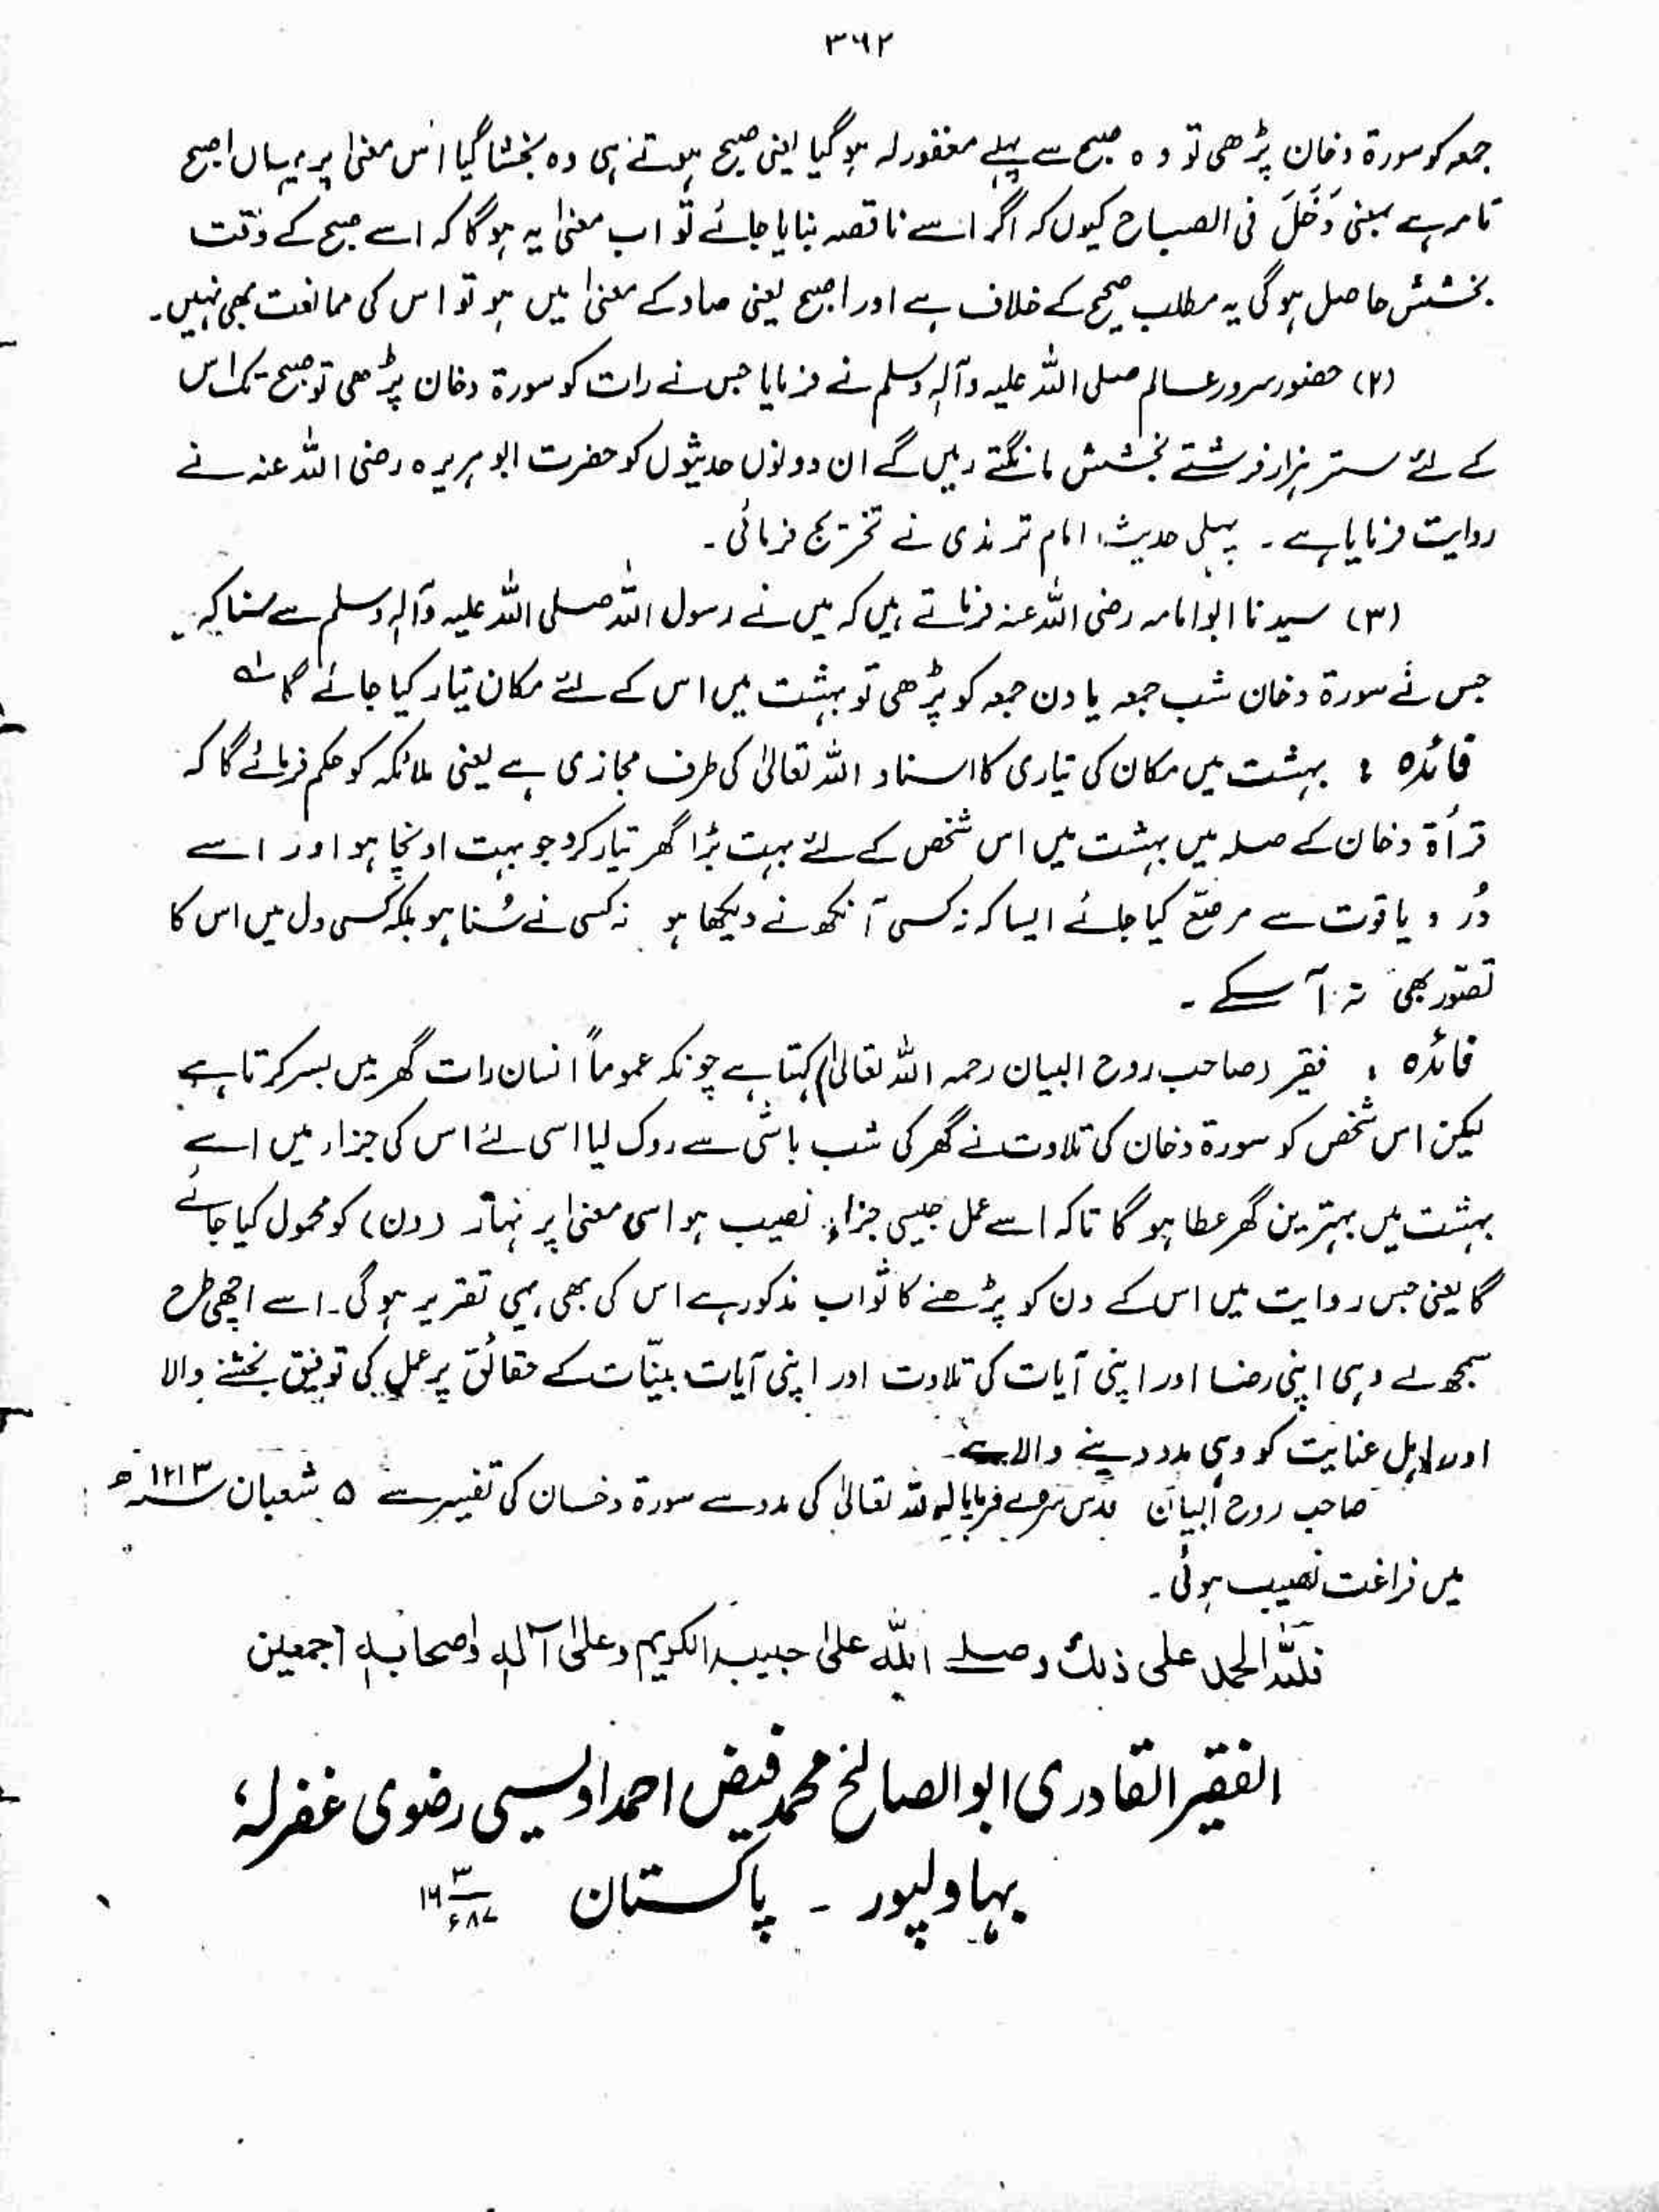 ۳۶۲
جمعہ کو سورۃ دخان پڑھی تو وہ صبح سے پہلے مغفورلہ ہو گیا یعنی صبح ہوتے ہی وہ بخشا گیا اس معنیٰ پر یہاں اصبح
تامہ ہے بمعنی دَخَلَ فی الصباح کیوں کہ اگر اسے ناقصہ بنایا جائے تو اب معنیٰ یہ ہو گا کہ اسے صبح کے وقت
بخشش حاصل ہو گی یہ مطلب صحیح کے خلاف ہے اور اصبح یعنی صار کے معنیٰ میں ہو تو اس کی ممانعت بھی نہیں۔
(۲) حضور سرور عالم صلی اللہ علیہ وآلہٖ وسلم نے فرمایا جس نے رات کو سورۃ دخان پڑھی تو صبح تک اس
کے لئے ستر ہزار فرشتے بخشش مانگتے رہیں گے ان دونوں حدیثوں کو حضرت ابو ہریرہ رضی اللہ عنہ نے
روایت فرمایا ہے ۔ پہلی حدیث امام ترمذی نے تخریج فرمائی ۔
(۳) سیدنا ابوامامہ رضی اللہ عنہ فرماتے ہیں کہ میں نے رسول اللہ صلی اللہ علیہ وآلہٖ وسلم سے سنا کہ
جس نے سورۃ دخان شب جمعہ یا دن جمعہ کو پڑھی تو بہشت میں اس کے لئے مکان تیار کیا جائے گا
فائدہ : بہشت میں مکان کی تیاری کا اسناد اللہ تعالیٰ کی طرف مجازی ہے یعنی ملائکہ کو حکم فرمائے گا کہ
قرأۃ دخان کے صلہ میں بہشت میں اس شخص کے لئے بہت بڑا گھر تیار کرو جو بہت اونچا ہو اور اسے
دُر و یاقوت سے مرصّع کیا جائے ایسا کہ نہ کسی آنکھ نے دیکھا ہو نہ کسی نے سُنا ہو بلکہ کسی دل میں اس کا
تصوّر بھی نہ آ سکے ۔
فائدہ : فقیر (صاحب روح البیان رحمہ اللہ تعالیٰ) کہتا ہے چونکہ عموماً انسان رات گھر میں بسر کرتا ہے
لیکن اس شخص کو سورۃ دخان کی تلاوت نے گھر کی شب باشی سے روک لیا اسی لئے اس کی جزاء میں اسے
بہشت میں بہترین گھر عطا ہو گا تاکہ اسے عمل جیسی جزاء نصیب ہو اسی معنیٰ پر نہار (دن) کو محمول کیا جائے
گا یعنی جس روایت میں اس کے دن کو پڑھنے کا ثواب مذکور ہے اس کی بھی یہی تقریر ہو گی۔ اسے اچھی طرح
سمجھ لے وہی اپنی رضا اور اپنی آیات کی تلاوت اور اپنی آیات بیّنات کے حقائق پر عمل کی توفیق بخشنے والا
اور اہل عنایت کو وہی مدد دینے والا ہے۔
صاحب روح البیان قدس سرہ نے فرمایا کہ اللہ تعالیٰ کی مدد سے سورۃ دخان کی تفسیر سے ۵ شعبان ۱۱۱۳ھ
میں فراغت نصیب ہوئی ۔
فللّٰہ الحمد علی ذلک وصلے اللہ علیٰ حبیبہ الکریم وعلیٰ آلہٖ واصحابہٖ اجمعین
الفقیر القادری ابوالصالح محمد فیض احمد اویسی رضوی غفرلہٗ
بہاولپور ۔ پاکستان